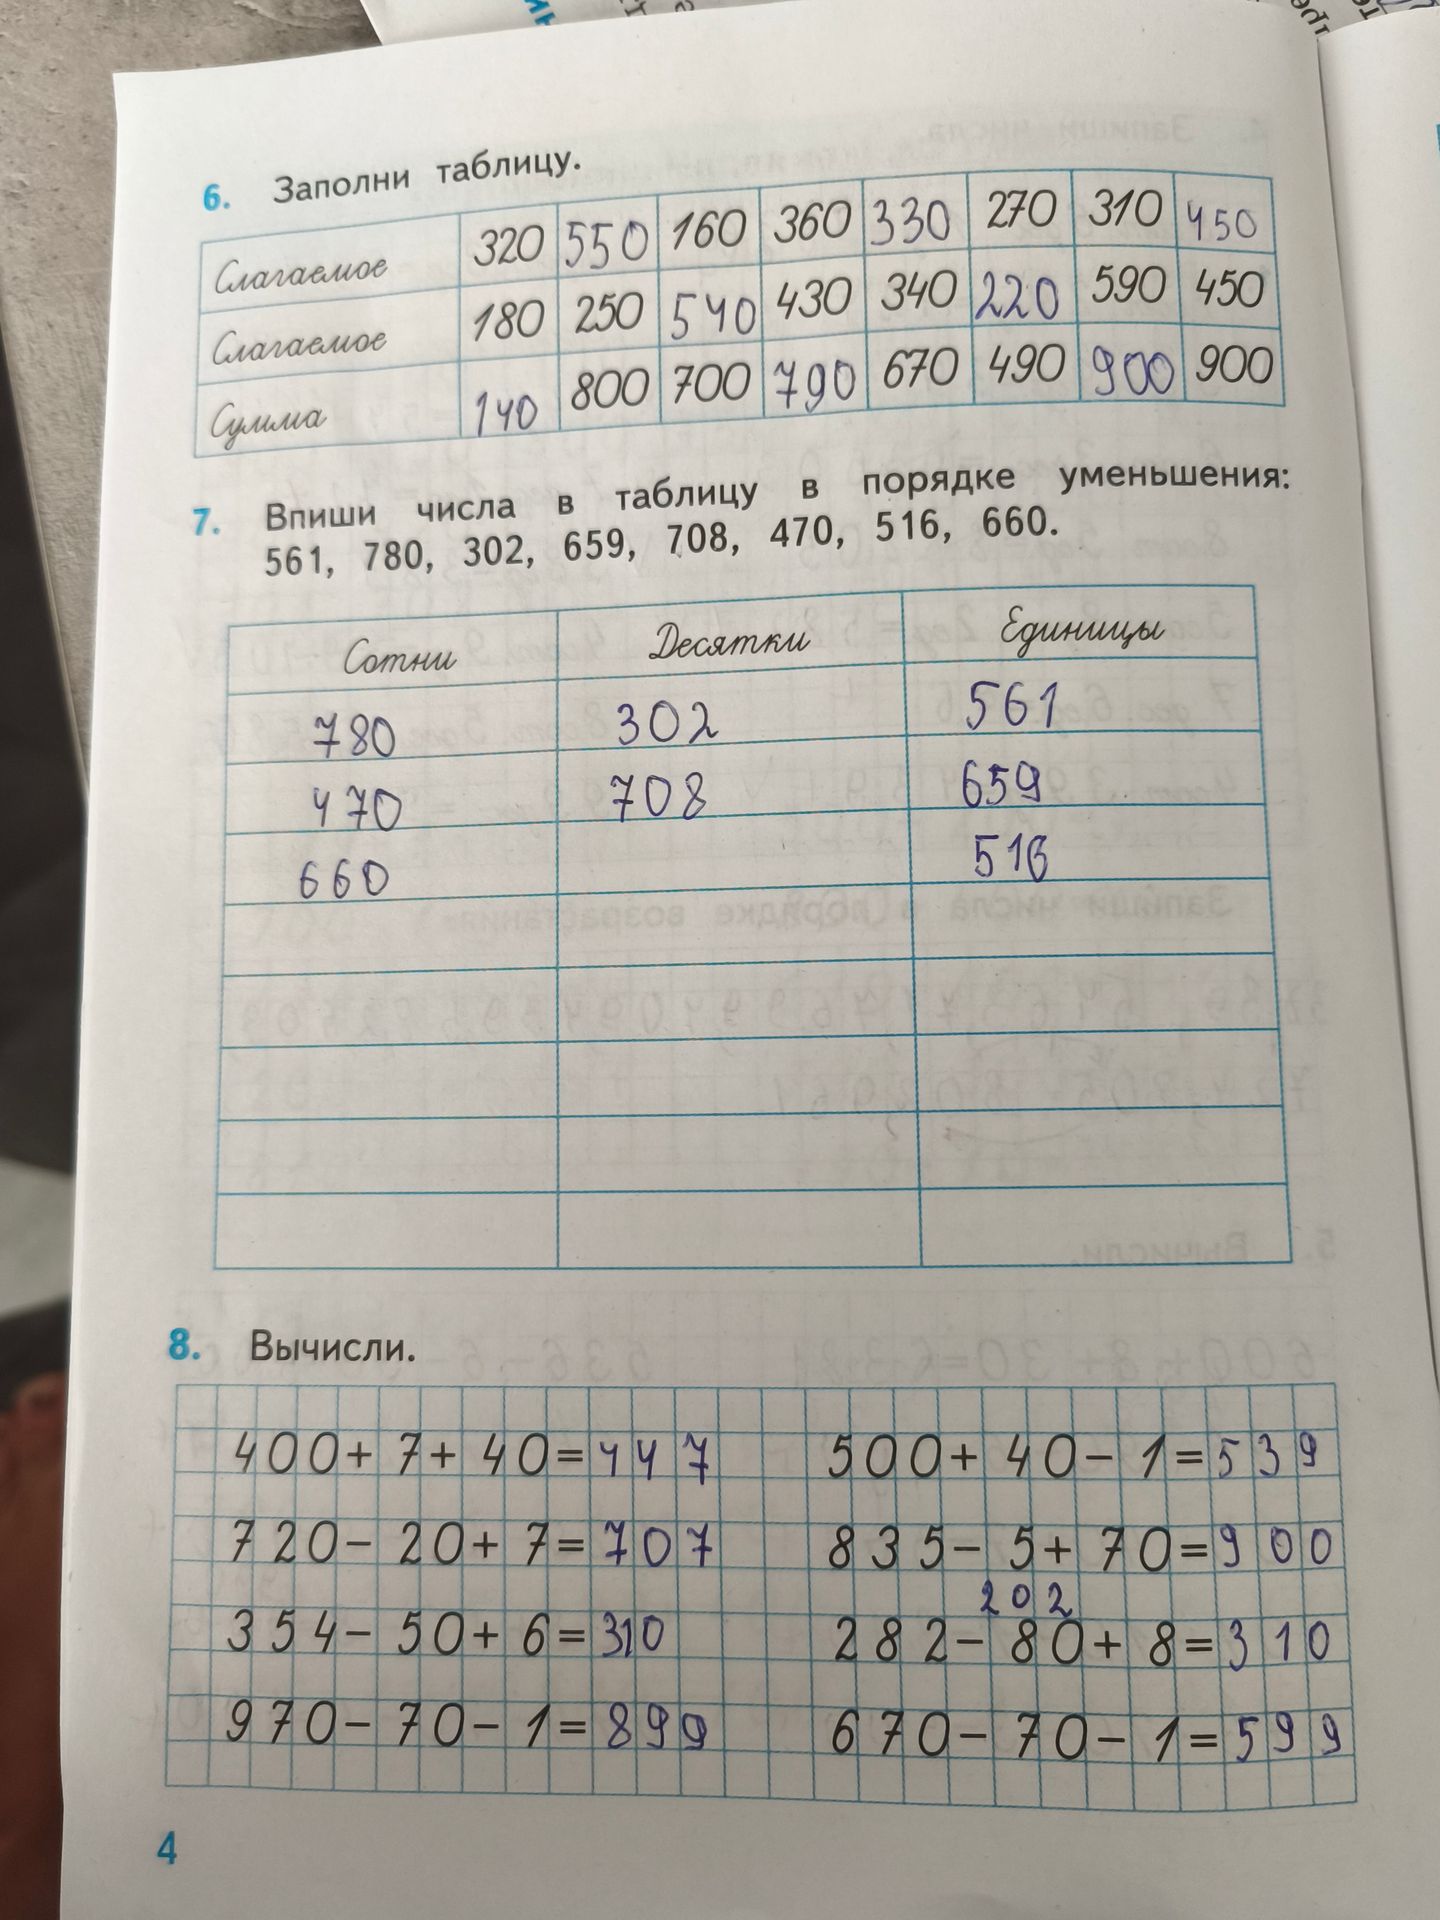 6. Заполни таблицу.
Слагаемое 320 550 160 360 330 270 310 450
Слагаемое 180 250 540 430 340 220 590 450
Сумма 140 800 700 790 670 490 900 900
7. Впиши числа в таблицу в порядке уменьшения:
561, 780, 302, 659, 708, 470, 516, 660.
Сотни Десятки Единицы
780 302 561
470 708 659
660 516
8. Вычисли.
400+ 7+ 40=447 500+ 40- 1=539
720- 20+ 7=707 835- 5+ 70=900
202
354- 50+ 6=310 282- 80+ 8=310
970- 70- 1=899 670- 70- 1=599
4